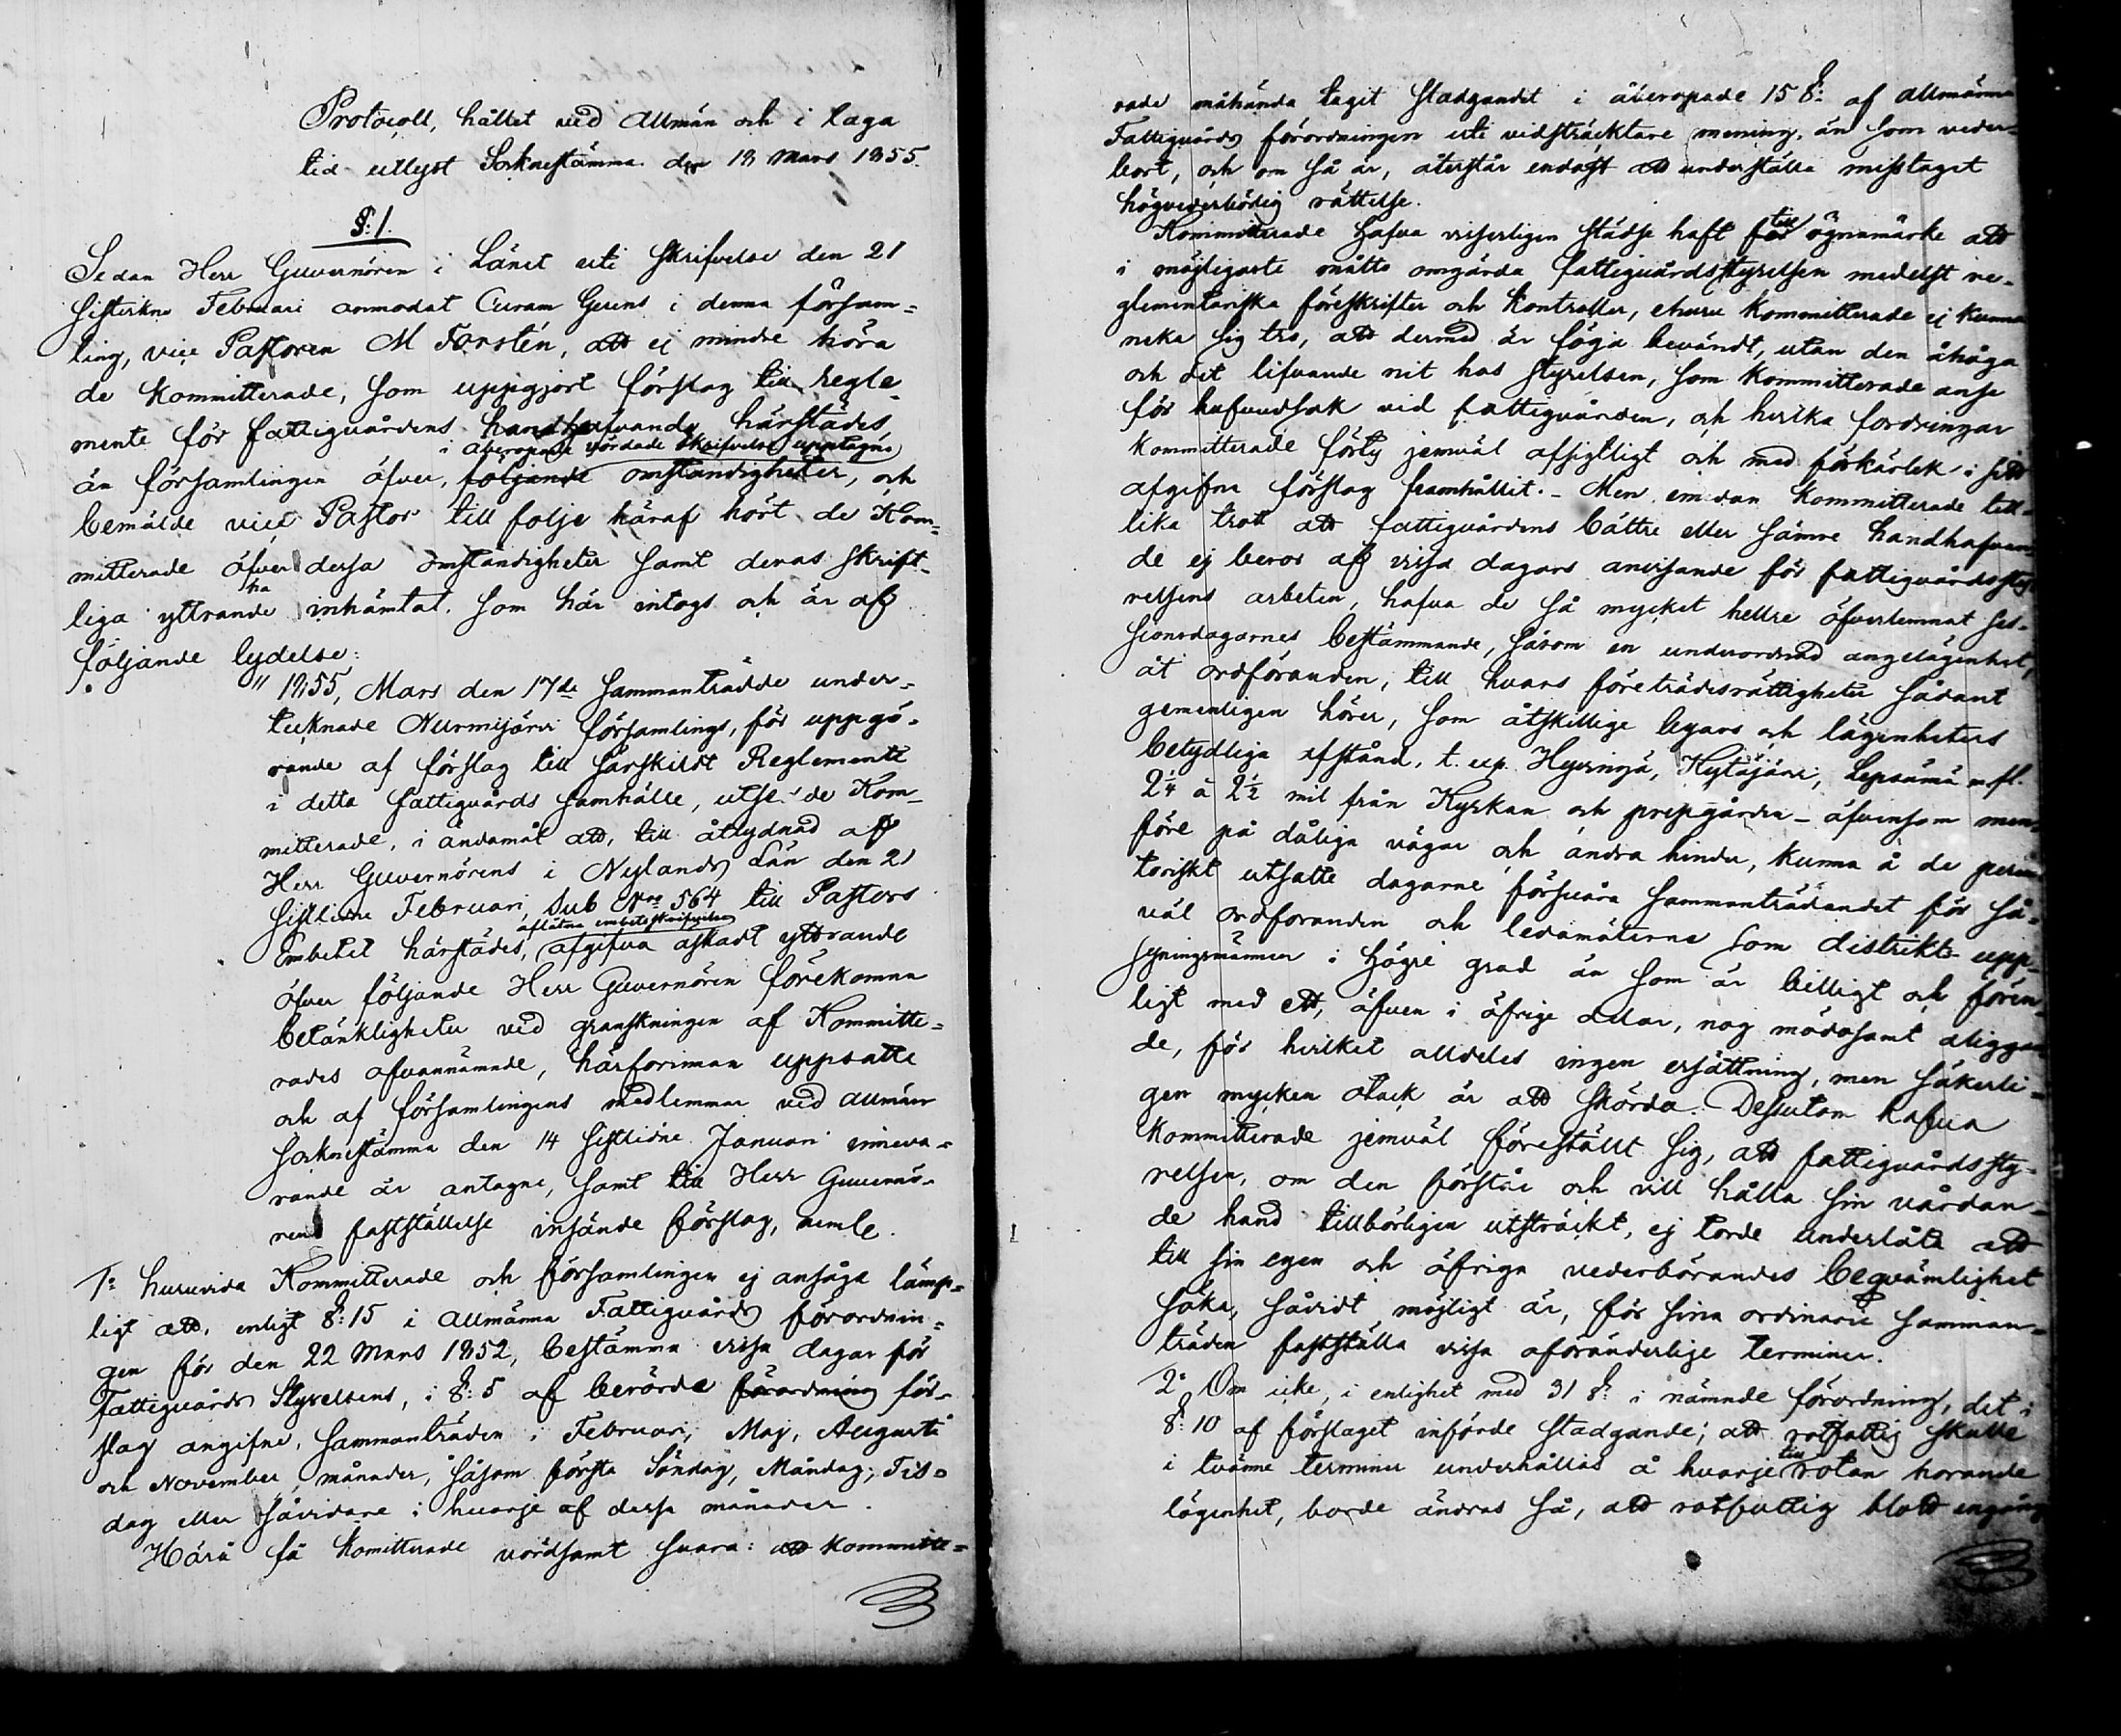 Protocoll, hållet vid Allmän och i laga
tid utlyst Sockne­stämma den 18 Mars 1855.
§: 1.
Sedan Herr Guvernören i Länet uti skrifvelse den 21
sistlidne Februari anmodat Curam Gerens i denna församling=
ling, vice Pastoren M Forstén, att ej mindre höra
de Kommitterade, som uppgjort förslag till regle-
mente för fattigvårdens handhafvande härstädes
i åberopade vördade skrifvelse upptagne
än församlingen öfver, följande omständigheter, och
bemälde vice Pastor till följe häraf hört de Kom=
mitterade öfver dessa omständigheter samt deras skrift-
ha
liga yttrande inhämtat, som här intogs och är af
följande lydelse:
"1855, Mars den 17de sammanträdde under-
tecknade Nurmijärvi församlings, för uppgö-
rande af förslag till särskildt Reglemente
i detta fattigvårds samhälle, utsedde Kom-
mitterade, i ändamål att, till åtlydnad af
Herr Guvernörens i Nylands Län den 21
sistlidne Februari, sub No 564 till Pastors
aflåtna embetsskrifvelse
Embetet härstädes, afgifva äskadt yttrande
öfver följande Herr Guvernören förekomna
betänkligheter vid granskningen af Kommitte=
rades ofvannämnde, härförinnan uppsatte
och af församlingens medlemmar vid allmän
sockne­stämma den 14 sistlidne Januari inneva-
rande år antagne, samt till Herr Guvernö-
rens fastställelse insände förslag, neml.
1o huruvida Kommitterade och församlingen ej ansåge lämp=
ligt att, enligt §: 15 i Allmänna Fattigvårds förordnin=
gen för den 22 Mars 1852, bestämma vissa dagar för
Fattigvårds Styrelsens, i §: 5 af berörde förordning för-
slag angifne, sammanträden i Februari, Maj, Augusti
och November månader, såsom första Söndag, Måndag, Tis=
dag eller såvidare i hvarje af dessa månader.
Härå få Komitterade vördsamt svara: att kommitte=
rade måhända taget stadgandet i åberopade 15 §: af allmänna
Fattigvårds förordningen uti vidsträcktare mening, än som veder-
bort, och om så är, återstår endast att underställa misstaget
högvederbörlig rättelse.
till
Kommitterade hafva visserligen städse haft för ögnamärke att
i möjligaste måtto omgärda fattigvårdsstyrelsen medelst re-
glementariska föreskrifter och kontroller, ehuru kommitterade ej kunna
neka sig tro, att dermed är föga bevändt, utan den åhåga
och det lifvande nit hos styrelsen, som kommitterade anse
för hufvudsak vid fattigvården, och hvilka fordringar
kommitterade förty jemväl afsigtligt och med förkärlek i sitt
afgifne förslag framhållit. - Men emedan kommitterade till-
lika trott att fattigvårdens bättre eller sämre handhafvan-
de ej beror af vissa dagars anvisande för fattigvårdssty-
relsens arbeten, hafva de så mycket hellre öfverlemnat ses-
sionsdagarnes bestämmande, såsom en underordnad angelägenhet,
åt ordföranden, till hvars företrädesrättigheter sådant
gemenligen hörer, som åtskillige byars och lägenheters
betydliga afstånd, t. ex. Hyvinge, Hytäjärvi, Lepsämä m fl.
2¼ à 2½ mil från Kyrkan och prestgården - äfvensom men-
före på dåliga vägar och andra hinder, kunna å de perem-
toriskt utsatte dagarne försvåra sammanträdandet för så-
väl ordföranden och ledamöterne som distrikts upp-
syningsmännen i högre grad än som är billigt och fören-
ligt med ett, äfven i öfrige delar, nog mödosamt åliggan-
de, för hvilket alldeles ingen ersättning, men säkerli-
gen mycken otack är att skörda. Dessutom hafva
Kommitterade jemväl föreställt sig, att fattigvårdssty-
relsen, om den förstår och vill hålla sin vårdan-
de hand tillbörligen utsträckt, ej torde underlåta att
till sin egen och öfriga vederbörandes beqvämlighet
söka, såvidt möjligt är, för sina ordinarie samman-
träden fastställa vissa oföränderlige terminer.
2o Om icke, i enlighet med 31 §: i nämnde förordning, det i
§: 10 af förslaget införde stadgande; att rotfattig skulle
till
i tvänne terminer underhållas å hvarje rotan hörande
lägenhet, borde ändras så, att rotfattig blott engång